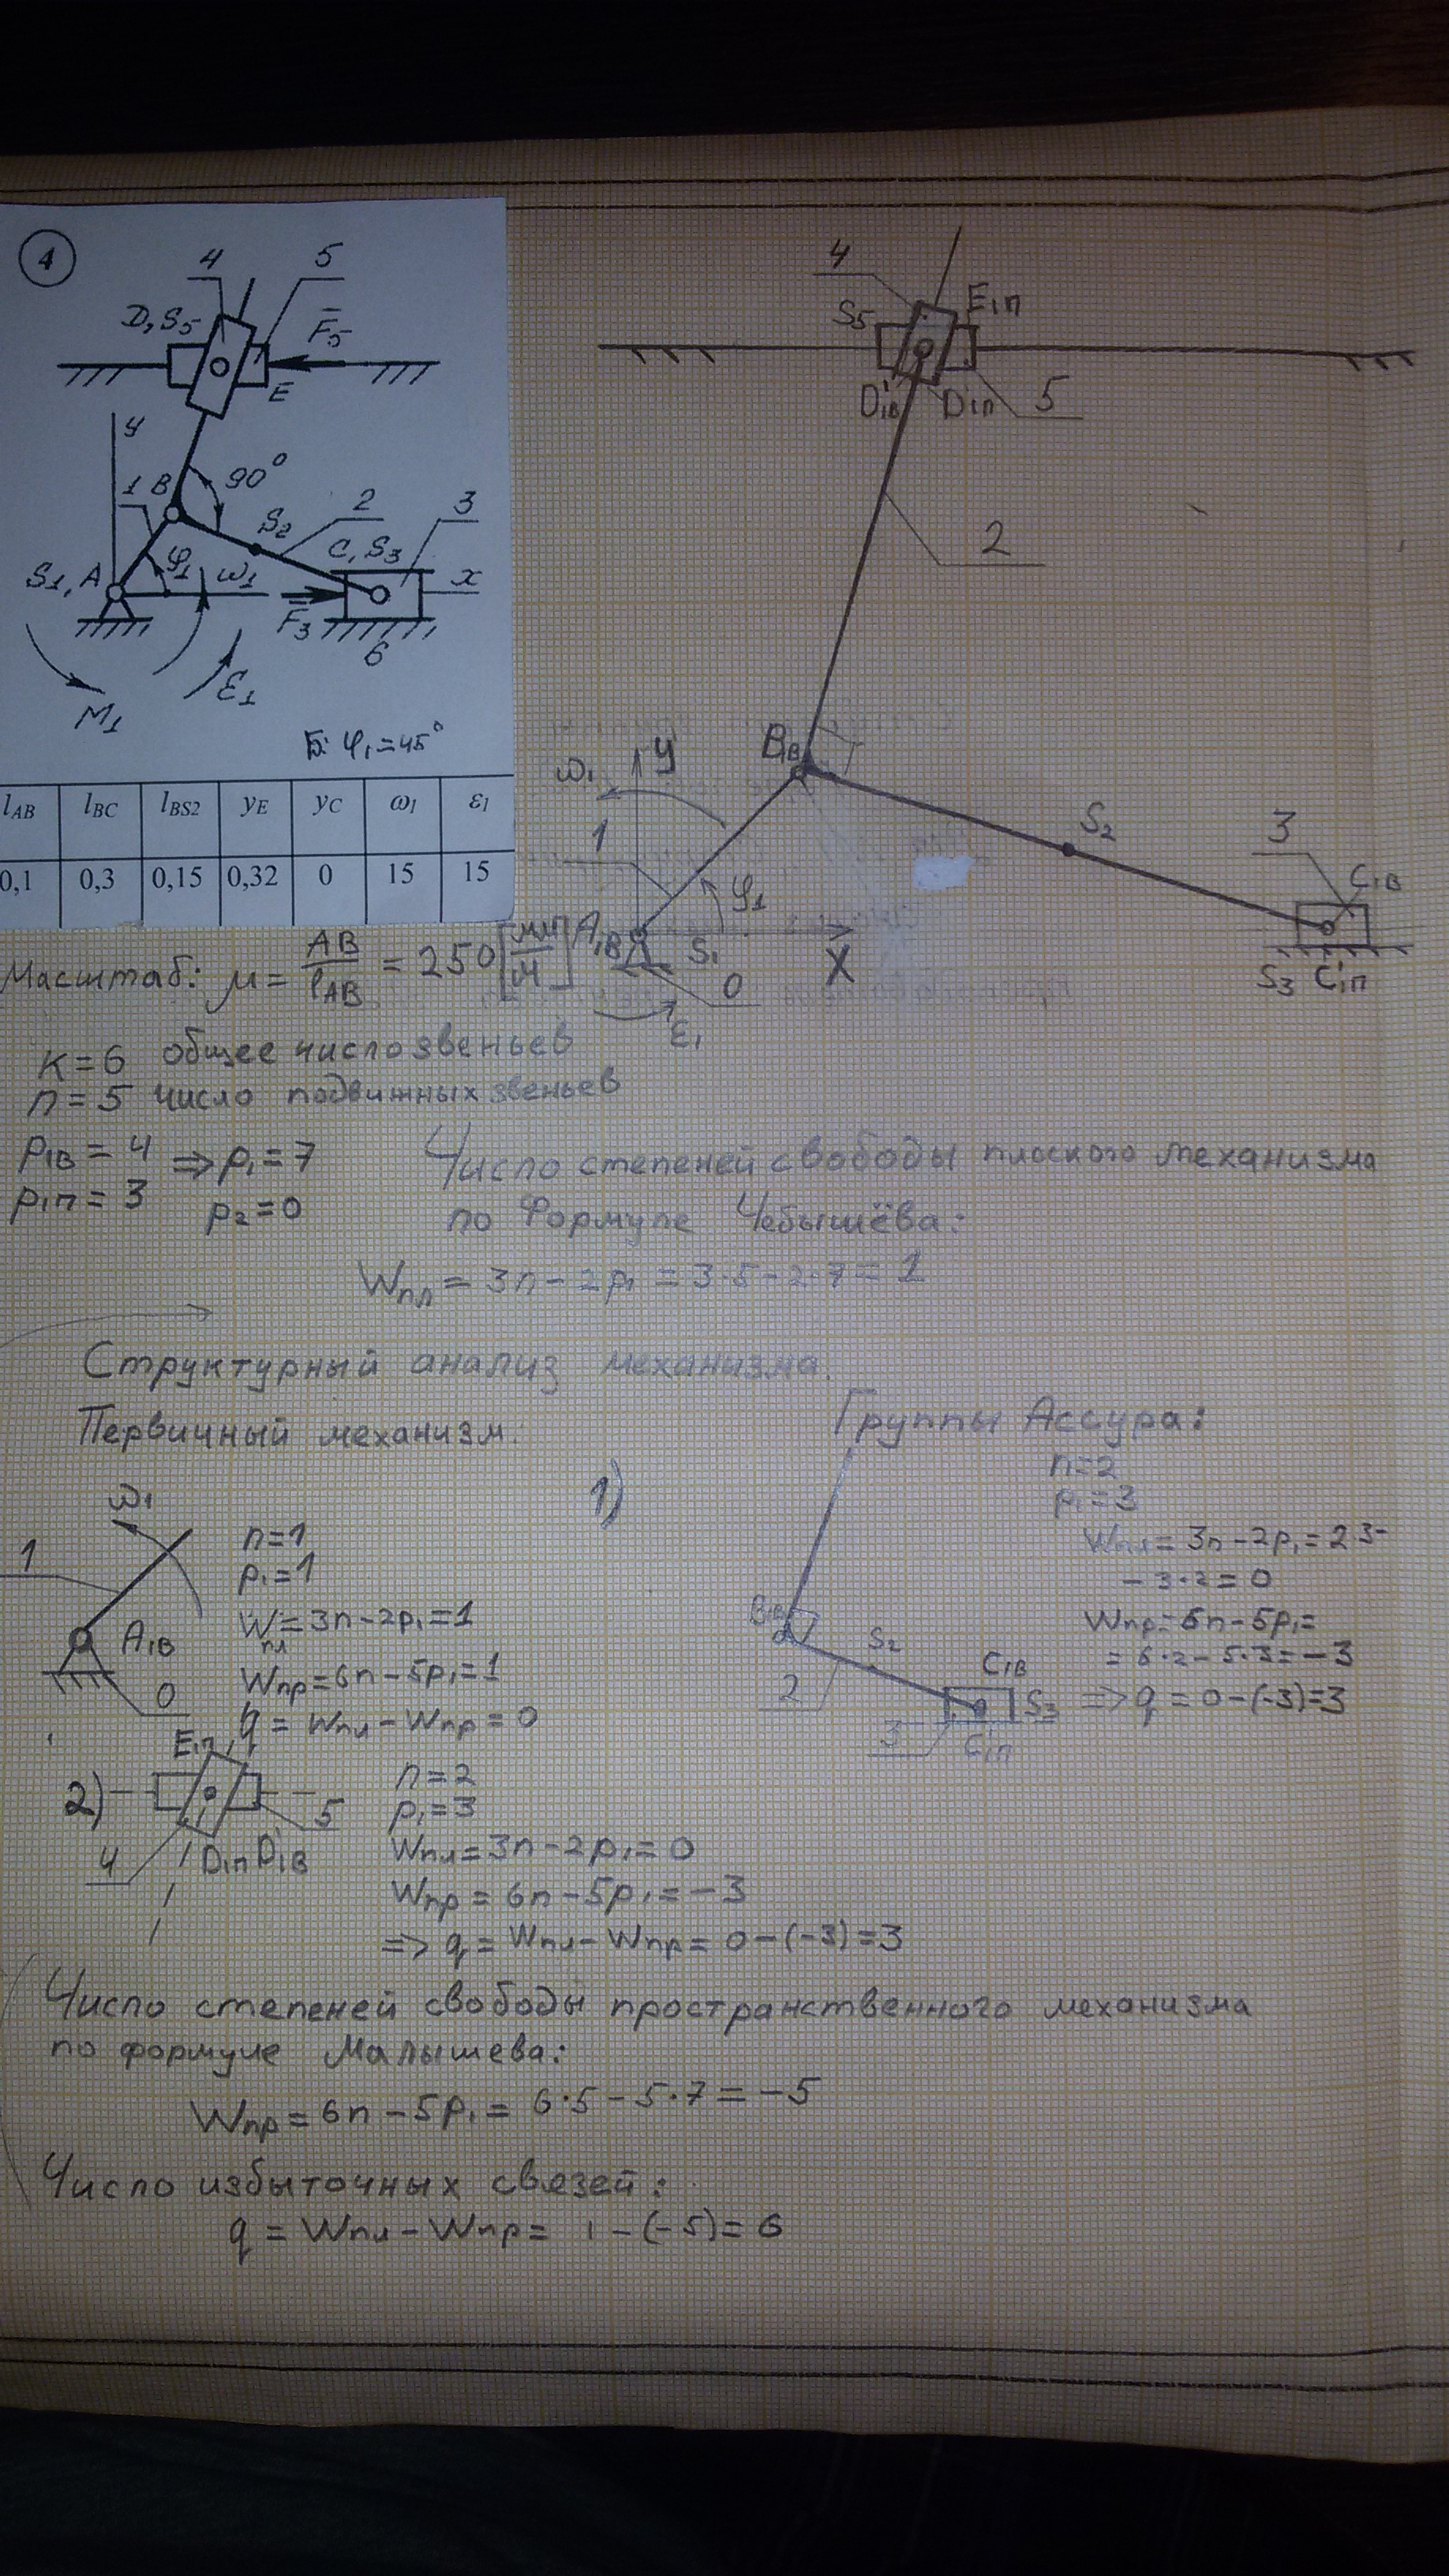 4
4
5
D, S5
F5
E
y
1
B
90°
S2
2
3
C, S3
S1, A
φ1
ω1
x
F3
6
ε1
M1
Б: φ1=45°
lAB lBC lBS2 yE yC ω1 ε1
0,1 0,3 0,15 0,32 0 15 15
4
S5
E1п
D'1в
D1п
5
2
B1в
ω1
y
1
φ1
S2
3
C1в
A1в
S1
0
X
S3 C'1п
ε1
Масштаб: μ = AB/lAB = 250 [мм/м]
K=6 общее число звеньев
n=5 число подвижных звеньев
p1в = 4 ⇒ p1 = 7
p1п = 3 p2 = 0
Число степеней свободы плоского механизма
по Формуле Чебышёва:
Wпл = 3n − 2p1 = 3·5 − 2·7 = 1
Структурный анализ механизма.
Первичный механизм.
Группы Ассура:
ω1
1
A1в
0
n=1
p1=1
Wпл = 3n − 2p1 = 1
Wпр = 6n − 5p1 = 1
q = Wпл − Wпр = 0
1)
B1в
S2
2
C1в
S3
3
C'1п
n=2
p1=3
Wпл = 3n − 2p1 = 2·3 −
− 3·2 = 0
Wпр = 6n − 5p1 =
= 6·2 − 5·3 = −3
⇒ q = 0 − (−3) = 3
2)
E1п
5
4
D1п D'1в
n=2
p1=3
Wпл = 3n − 2p1 = 0
Wпр = 6n − 5p1 = −3
⇒ q = Wпл − Wпр = 0 − (−3) = 3
Число степеней свободы пространственного механизма
по формуле Малышева:
Wпр = 6n − 5p1 = 6·5 − 5·7 = −5
Число избыточных связей:
q = Wпл − Wпр = 1 − (−5) = 6